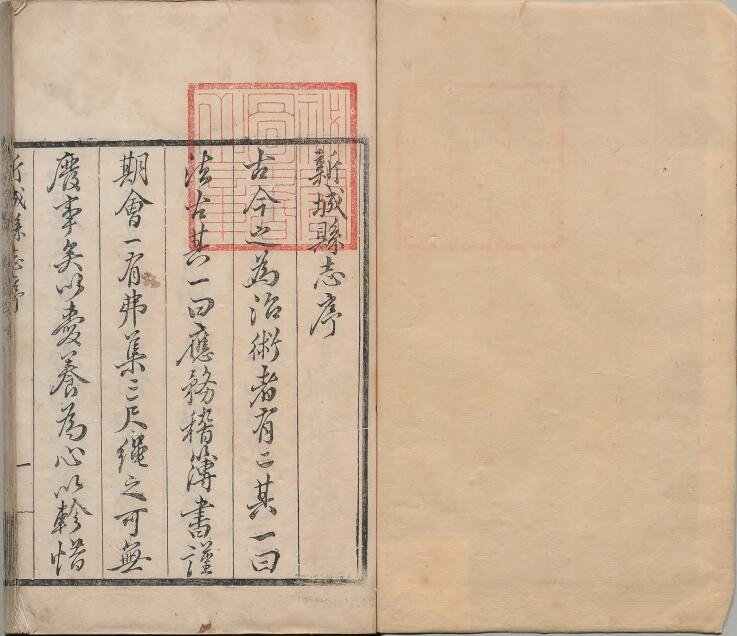 新城縣志序
古今之為治術者有二其一曰
法古其一曰應務稽簿書謹
期會一有弗集三尺繩之可無
廢事矣以愛養為心以軫惜
新城縣志序
一